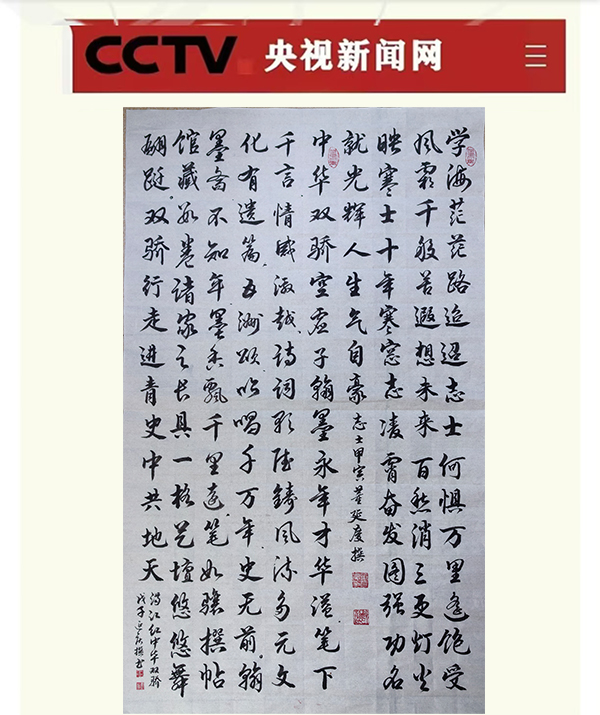 CCTV 央视新闻网
学海茫茫路迢迢志士何惧万里遥饱受
风霜千般苦遐想未来百愁消三更灯火
映寒士十年寒窓志凌霄奋发图强功名
就光辉人生气自豪 志士甲寅董延度撰
中华双骄空虚子翰墨永年才华溢笔下
千言情感激越诗词歌铸风流多元文
化有遗篇五洲颂以唱千万年史无前翰
墨斋不知年墨香飘千里远笔如骥撰帖
馆藏数卷诸家之长具一格艺壇悠悠舞
翩跹双骄行走进青史中共地天
满江红中华双骄
戊子延撰书